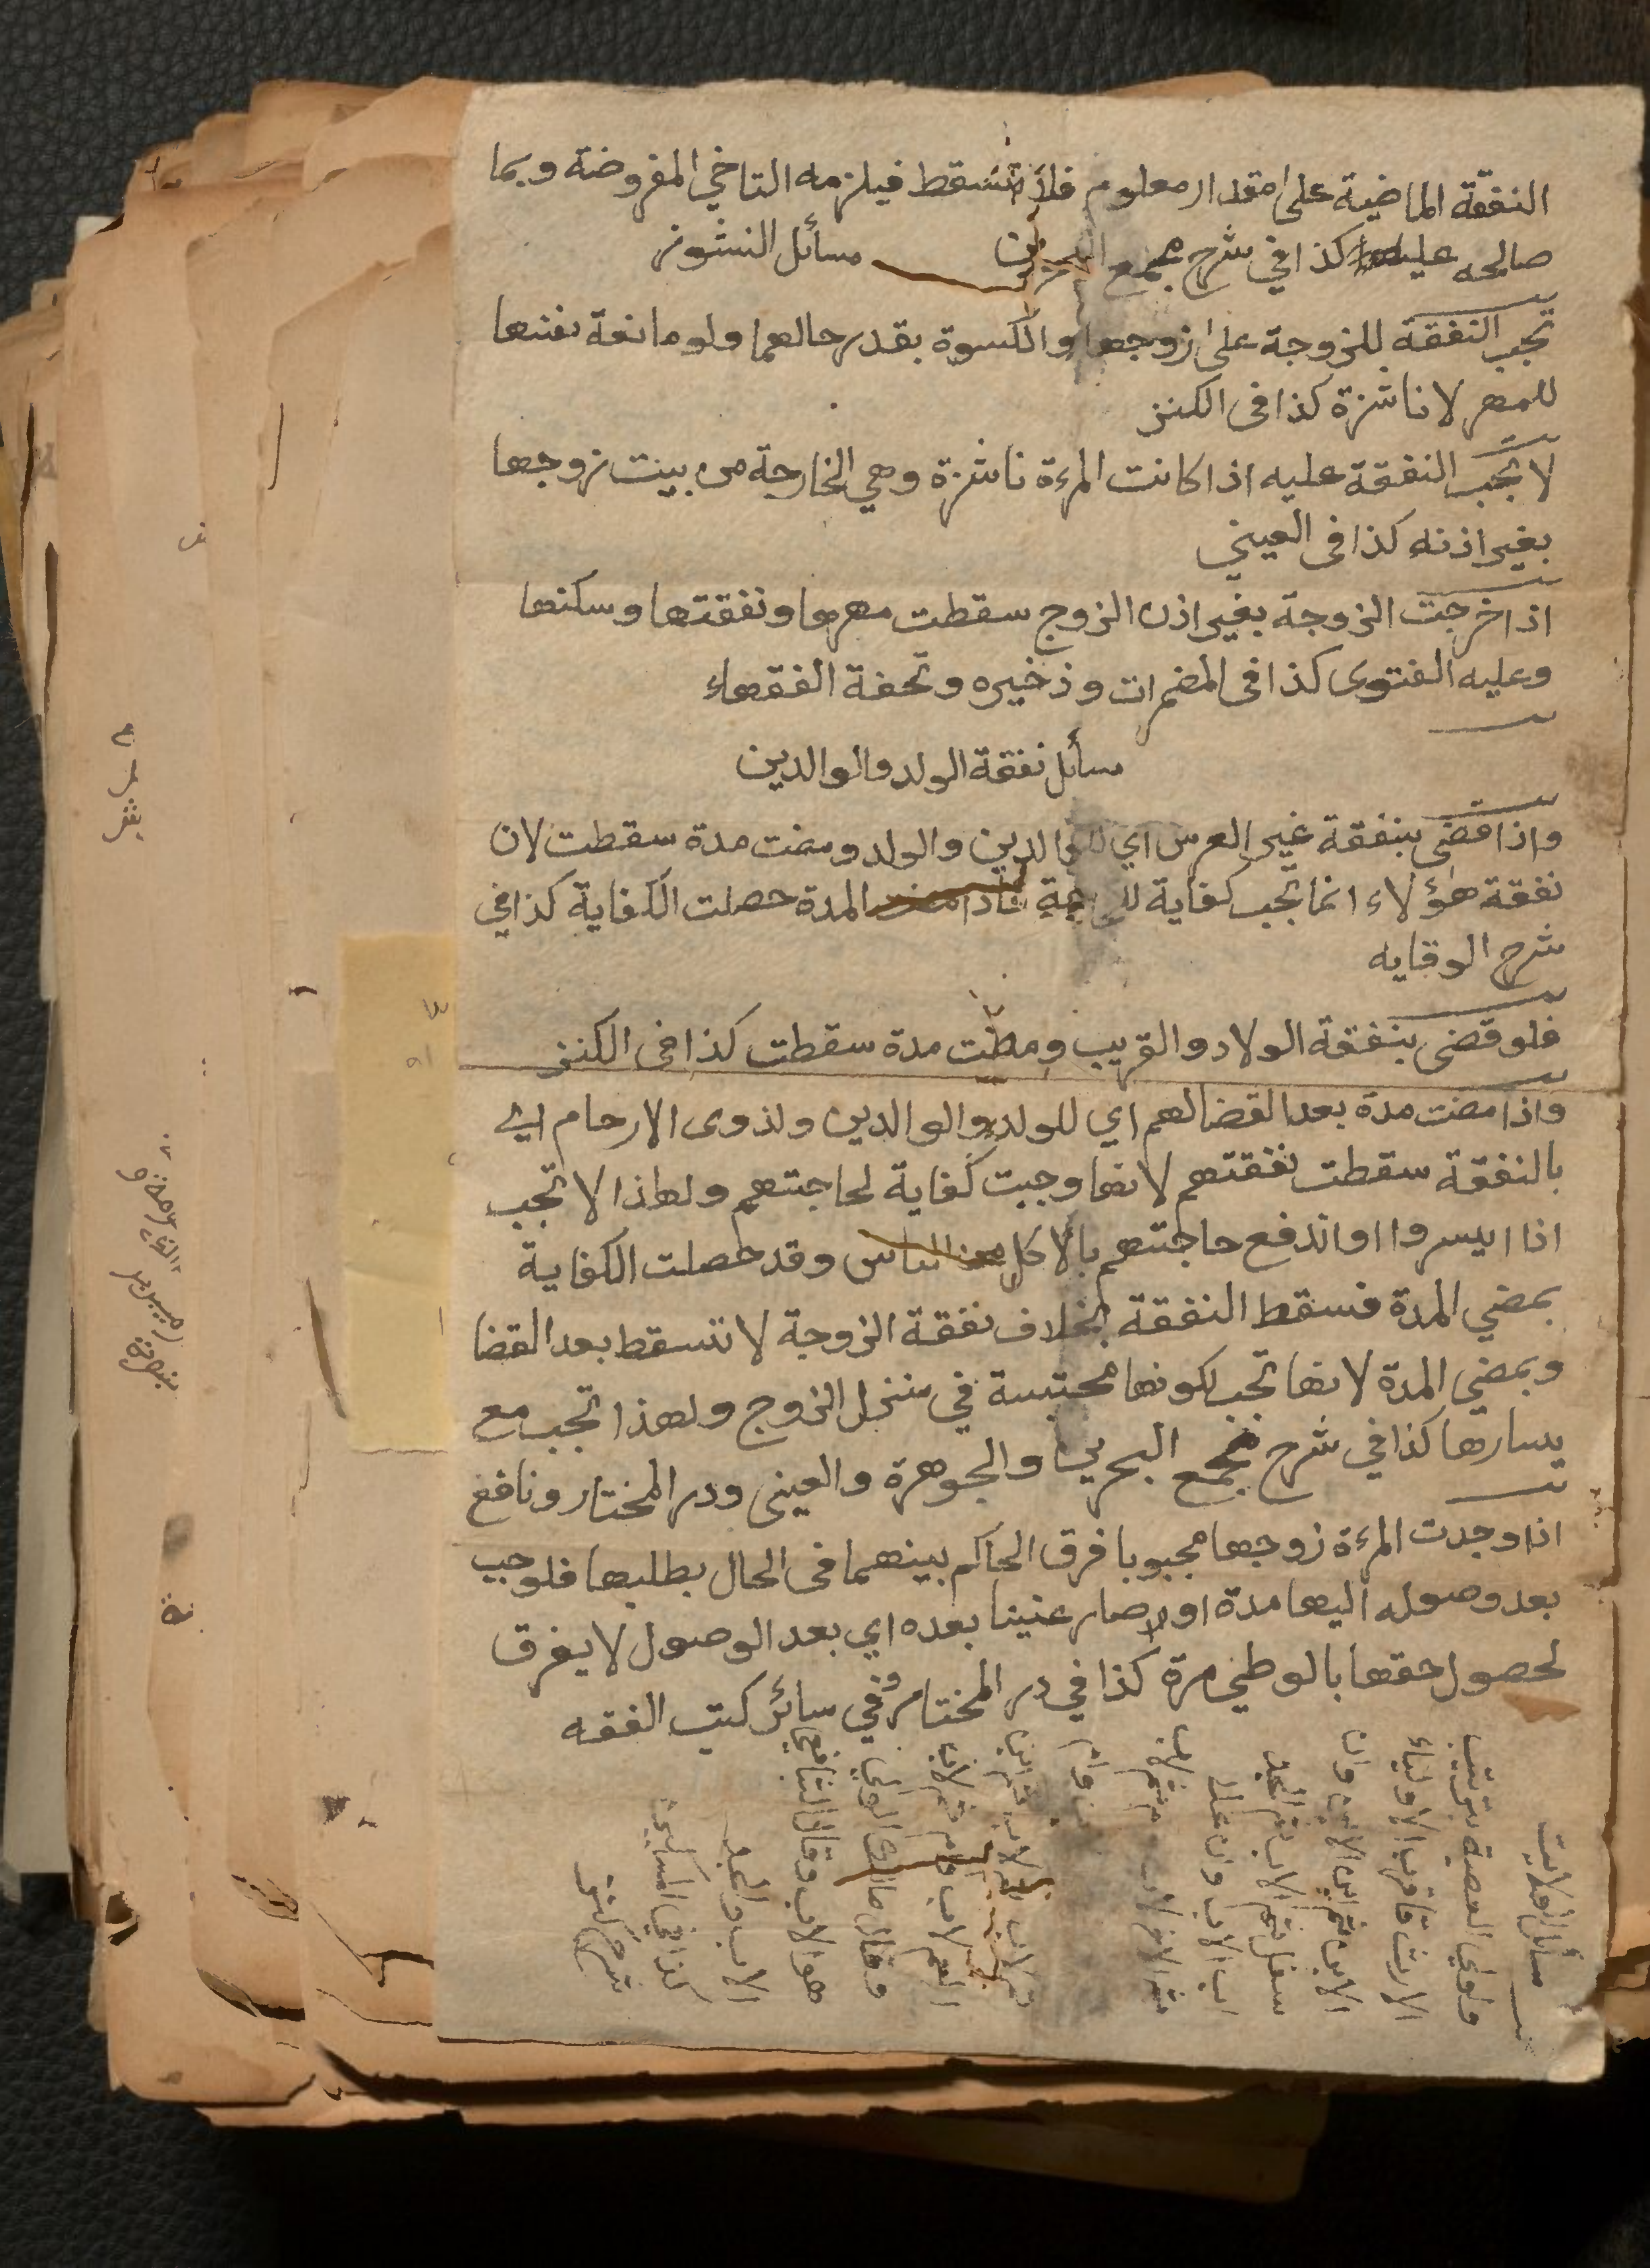 النفقة الماضية على مقدار معلوم فلا تسقط فيلزمه القاضي المفروضة وبما
صالحه عليه كذا في شرح مجمع البحرين مسائل النشوز
تجب النفقة للزوجة على زوجها والكسوة بقدر حالهما ولو مانعة نفسها
للمهر لا ناشزة كذا فى الكنز
لا تجب النفقة عليه اذا كانت المرءة ناشزة وهي الخارجة من بيت زوجها
بغير اذنه كذا فى العيني
اذا خرجت الزوجة بغير اذن الزوج سقطت مهرها ونفقتها وسكنها
وعليه الفتوى كذا فى المضمرات وذخيره وتحفة الفقهاء
مسائل نفقة الولد والوالدين
واذا قضى بنفقة غير العرس اي للوالدين والولد ومضت مدة سقطت لان
نفقة هؤلاء انما تجب كفاية للحاجة المدة حصلت الكفاية كذا في
شرح الوقايه
فلو قضى بنفقة الولاد والقريب ومضت مدة سقطت كذا فى الكنز
واذا مضت مدة بعد القضا لهم اي للولد والوالدين ولذوى الارحام اي
بالنفقة سقطت نفقتهم لانها وجبت كفاية لحاجتهم ولهاذا لا تجب
اذا ايسروا او اندفع حاجتهم بالاكل من الناس وقد حصلت الكفاية
بمضي المدة فسقط النفقة بخلاف نفقة الزوجة لا تسقط بعد القضا
وبمضي المدة لانها تجب لكونها محتبسة في منزل الزوج ولهذا تجب مع
يسارها كذا في شرح مجمع البحرين والجوهرة والعينى ودر المختار ونافع
اذا وجدت المرءة زوجها مجبوبا فرق الحاكم بينهما فى الحال بطلبها فلو جب
بعد وصوله اليها مدة او صار عنينا بعده اي بعد الوصول لا يفرق
لحصول حقها بالوطي مرة كذا في در المختار وفي سائر كتب الفقه
مسائل الولايت
ولولي العصبة بترتيب
الارث فاقرب الاولياء
الابن ثم ابن الابن وان
سفل ثم الاب ثم الجد
اب الاب وان علا
ثم
العم لاب وام ثم لاب
وقال مالك الولي
هو الاب وقال الشافعي
الاب والجد
كذا في
شرح كنز